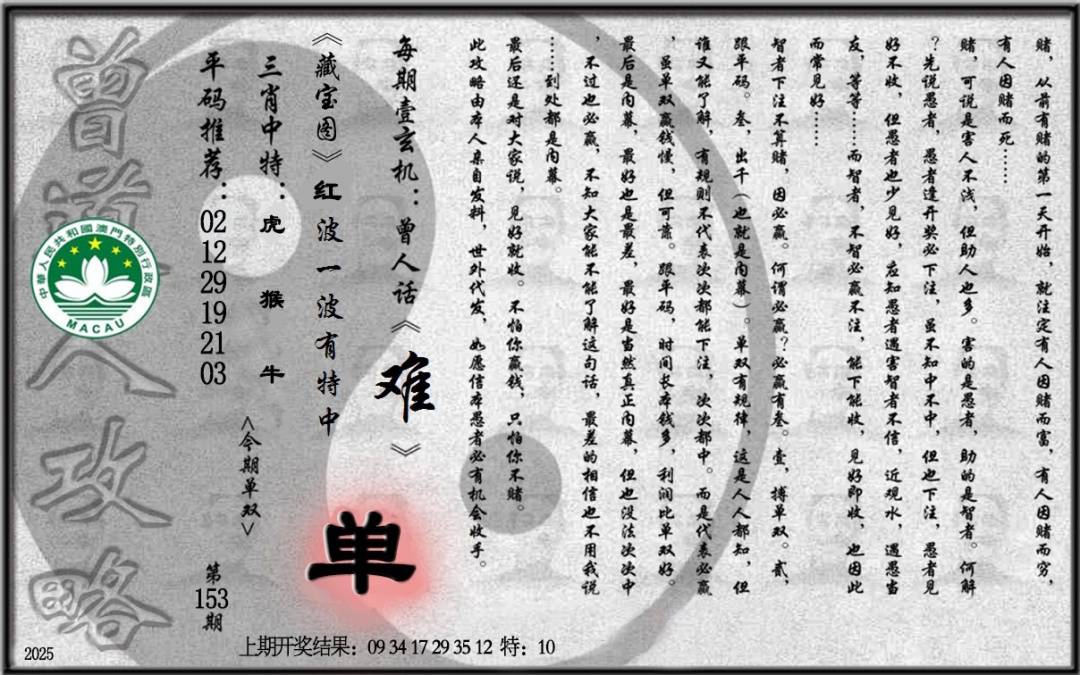 赌，从前有赌的第一天开始，就注定有人因赌而富，有人因赌而穷，
有人因赌而死……
赌，可说是害人不浅，但助人也多。害的是愚者，助的是智者。何解
？先说愚者，愚者逢开奖必下注，虽不知中不中，但也下注，愚者见
好不收，但愚者也少见好，应知愚者遇害智者不信，近观水，遇愚当
友，等等……而智者，不智必赢不注，能下能收，见好即收，也因此
而常见好……
智者下注不算赌，因必赢。何谓必赢？必赢有叁。壹，搏单双。贰，
跟平码。叁，出千（也就是内幕）。单双有规律，这是人人都知，但
谁又能了解，有规则不代表次次都能下注，次次都中。而是代表必赢
，虽单双赢钱慢，但可靠。跟平码，时间长本钱多，利润比单双好。
最后是内幕，最好也是最差，最好是当然真正内幕，但也没法次次中
，不过也必赢，不知大家能不能了解这句话，最差的相信也不用我说
……到处都是内幕。
最后还是对大家说，见好就收。不怕你赢钱，只怕你不赌。
此攻略由本人亲自发料，世外代发，如愿信本愚者必有机会收手。
每期壹玄机：曾人话《难》
《藏宝图》红波一波有特中
单
三肖中特：虎 猴 牛
<今期单双>
平码推荐：02 12 29 19 21 03
第153期
曾道人攻略
中華人民共和國澳門特別行政區
MACAU
上期开奖结果：09 34 17 29 35 12 特：10
2025